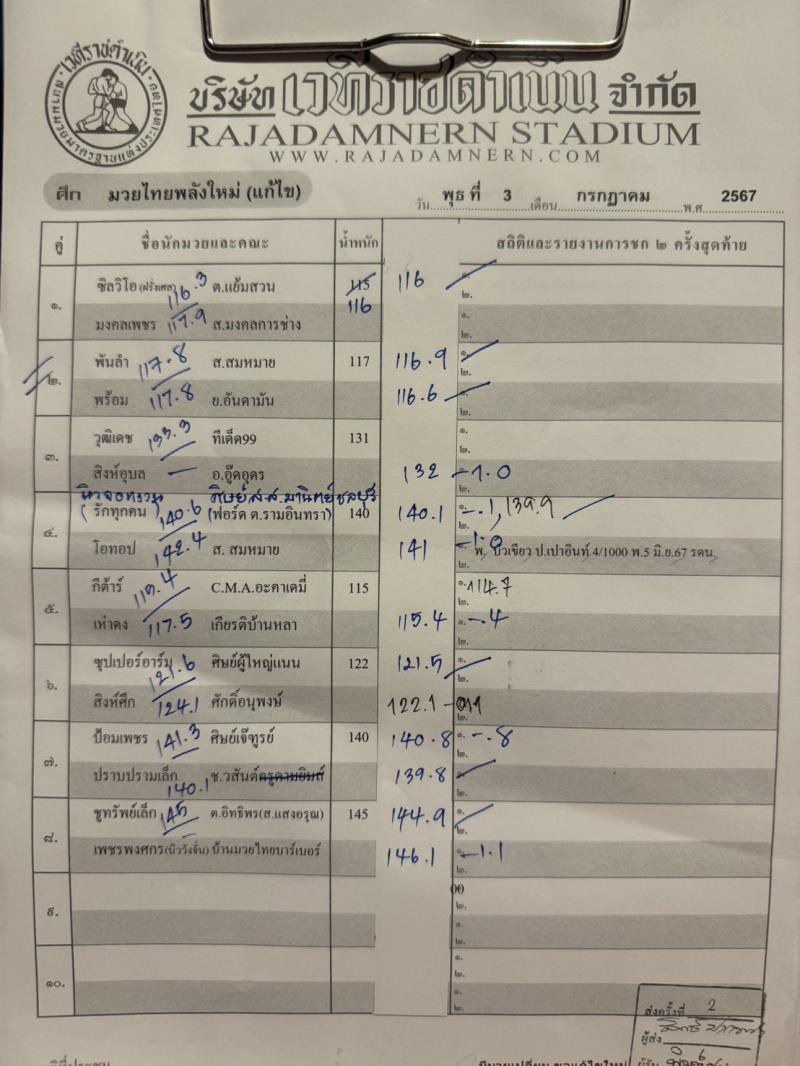 เวทีราชดำเนิน
บริษัท เวทีราชดำเนิน จำกัด
RAJADAMNERN STADIUM
WWW.RAJADAMNERN.COM
ศึก มวยไทยพลังใหม่ (แก้ไข) วัน พุธ ที่ 3 เดือน กรกฎาคม พ.ศ 2567
คู่ ชื่อนักมวยและคณะ น้ำหนัก สถิติและรายงานการชก ๒ ครั้งสุดท้าย
๑. ซิลวิโอ (ฝรั่งเศส) 116.3 ต.แย้มสวน 115 116 116 ๑.
๒.
มงคลเพชร 117.9 ส.มงคลการช่าง ๑.
๒.
๒. พันลำ 117.8 ส.สมหมาย 117 116.9 ๑.
๒.
พร้อม 117.8 ย.อันดามัน 116.6 ๑.
๒.
๓. วุฒิเดช 133.3 ทีเด็ด99 131 ๑.
๒.
สิงห์อุบล อ.อู๊ดอุดร 132 -1.0
๒.
ศิษย์ส.ส.มานิตย์ชลบุรี
๔. (รักทุกคน) 140.6 (ฟอร์ด ต.รามอินทรา) 140 140.1 -.1, 139.9
๒.
โอทอป 142.4 ส. สมหมาย 141 -1.0
พ. บัวเขียว ป.เปาอินท์ 4/1000 พ.5 มิ.ย.67 รดน.
๒.
๕. กีต้าร์ 117.4 C.M.A.อะคาเดมี่ 115 ๑. 114.7
๒.
เห่าดง 117.5 เกียรติบ้านหลา 115.4 ๑. -.4
๒.
๖. ซุปเปอร์อาร์ม 121.6 ศิษย์ผู้ใหญ่แนน 122 121.5 ๑.
๒.
สิงห์ศึก 124.1 ศักดิ์อนุพงษ์ 122.1
๒.
๗. ป้อมเพชร 141.3 ศิษย์เจ๊ทูรย์ 140 140.8 ๑. -.8
๒.
ปราบปรามเล็ก 140.1 ช.วสันต์ครูดามยิมส์ 139.8 ๑.
๒.
๘. ชูทรัพย์เล็ก 145 ต.อิทธิพร(ส.แสงอรุณ) 145 144.9 ๑.
๒.
เพชรพงศกร(นิววังจั่น) บ้านมวยไทยบาร์เบอร์ 146.1 -1.1
๒.
๙. 00
๒.
๑.
๒.
๑๐. ๑.
๒.
๑.
๒.
ส่งครั้งที่ 2
ผู้ส่ง
ผู้รับ